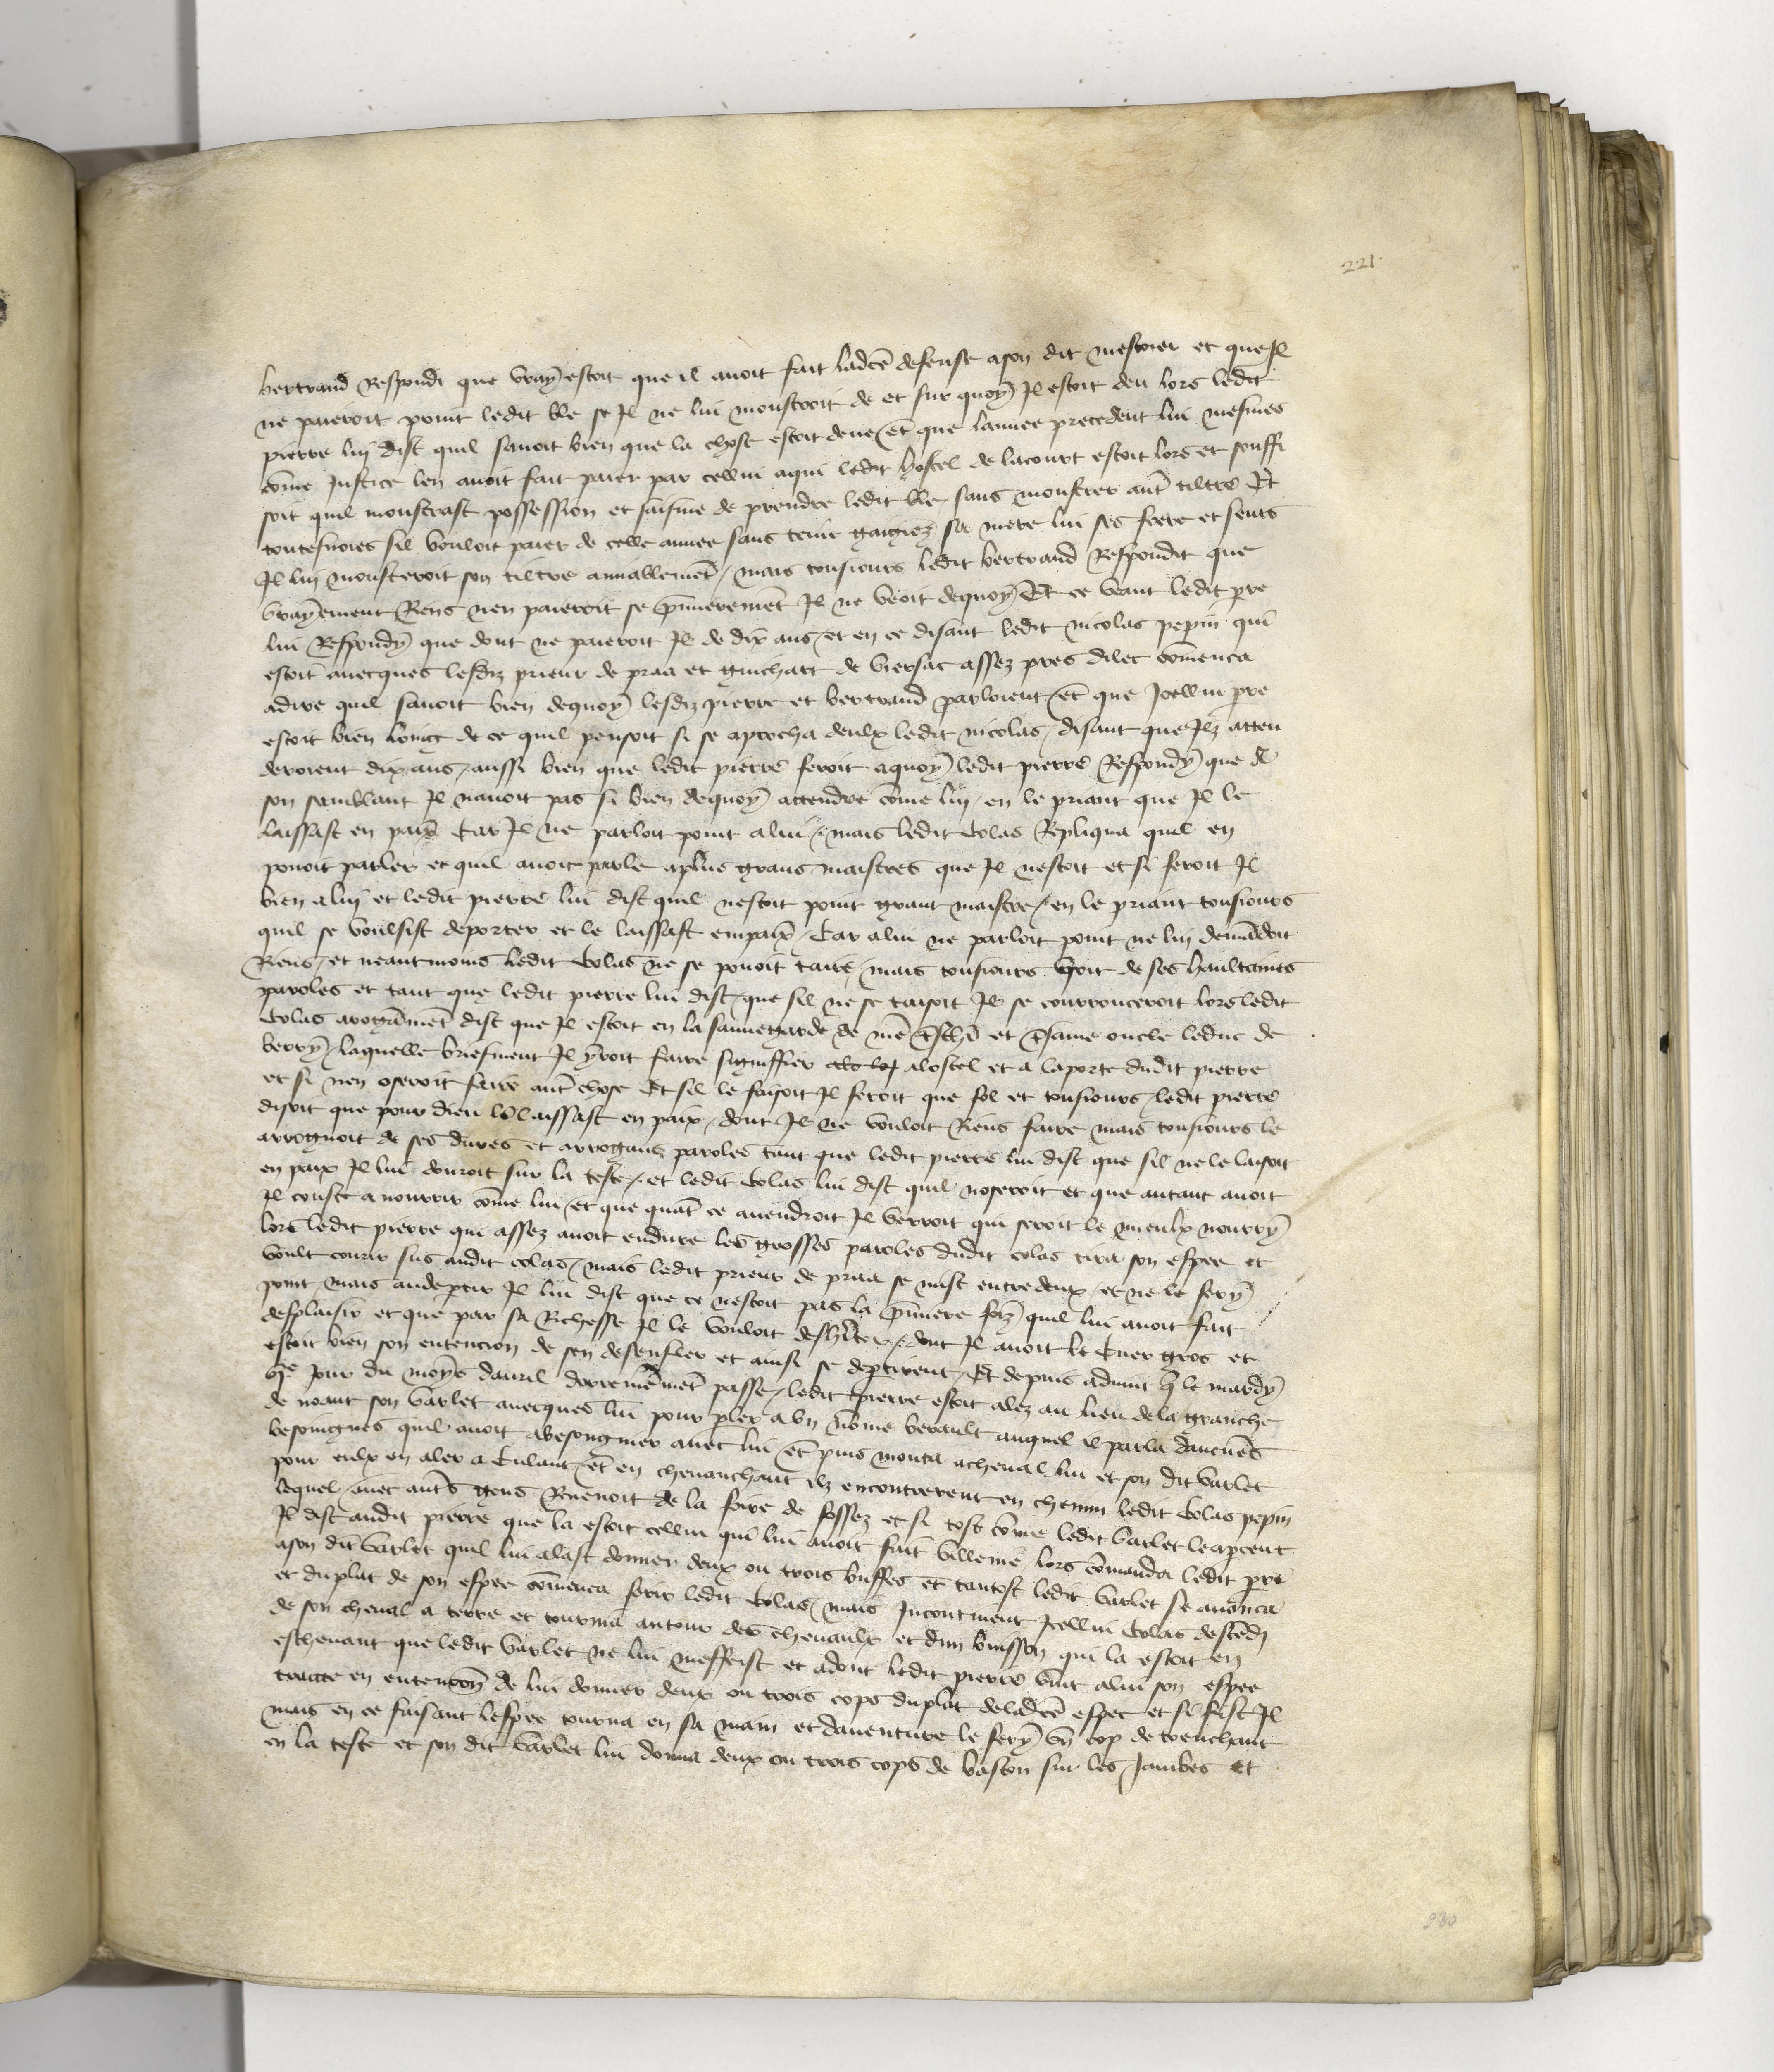 221.
bertrand Respondi que vray estoit que il auoit fait ladce defense a son dit mestoier et que Jl
ne paieroit point ledit ble se Jl ne lui monstroit de et sur quoy Jl estoit deu lors ledit
pierre luj dist quil sauoit bien que la chose estoit deue et que lannee precedent lui mesmes
come Justice len auoit fait paier par cellui a qui ledit hostel de lacourt estoit lors et souffi
soit quil monstrast possession et saisine de prendre ledit ble sans monstrer aut tiltre Et
toutesuoies sil vouloit paier de celle annee sans tenir gaigiez sa mere lui ses frere et seurs
Jl luj monstreroit son tiltre annallemet / mais tousiours ledit bertrand Respondit que
vrayement Riens nen paieroit se pmierement Jl ne veoit dequoy Et ce veant ledit pre
lui Respondy que dont ne paieroit Jl de dix ans / et en ce disant ledit nicolas pepin qui
estoit auecques lesdiz prieur de praa et guichart de viersac assez pres dilec comenca
adire quil sauoit bien dequoy lesdiz pierre et bertrand parloient / et que Jcellui pre
estoit bien loing de ce quil pensoit si se aprocha deulx ledit nicolas / disant que Jlz atten
deroient dix ans / aussi bien que ledit pierre feroit aquoy ledit pierre Respondy que de
son semblant Jl nauoit pas si bien dequoy attendre come luj / en le priant que Jl le
laissast en paix Car Jl ne parloit point a lui / mais ledit Colas Repliqua quil en
pouoit parler et quil auoit parle aplus grans maistres que Jl nestoit et si feroit Jl
bien a luj et ledit pierre lui dist quil nestoit point grant maistre / en le priant tousiours
quil se voulsist deporter et le laissast empaix / Car a lui ne parloit point ne luj demandoit
Riens / et neantmoins ledit Colas ne se pouoit taire / mais tousiours vsoit de ses haultaines
paroles et tant que ledit pierre lui dist / que sil ne se taisoit Jl se courrouceroit lors ledit
Colas arrogamet dist que Jl estoit en la sauuegarde de nre et oncle leduc de
berry / laquelle briefment Jl yroit faire signiffier alostel et a laporte dudit pierre
et si nen oseroit faire aut chose Et sil le faisoit Jl feroit que fol et tousiours / ledit pierre
disoit que pour dieu le laissast en paix / dont Jl ne vouloit Riens faire mais tousiours le
arrognoit de ses dures et arrogans paroles tant que ledit pierre lui dist que sil ne le laissoit
en paix Jl lui donroit sur la teste / et ledit Colas lui dist quil noseroit et que autant auoit
Jl couste a nourrir come lui / et que quat ce auendroit Jl verroit qui seroit le mieulx nourry
lors ledit pierre qui assez auoit endure les grosses paroles dudit colas tira son espee et
voult courir sus audit colas / mais ledit prieur de praa se mist entredeux / et ne le fery
point mais audeptir Jl lui dist que ce nestoit pas la pmiere foiz quil lui auoit fait
desplaisir et que par sa Richesse Jl le vouloit desheriter / dont Jl auoit le Cuer gros et
estoit bien son entencion de sen desenfler et ainsi se deptirent / Et depuis aduint q le mardy
 jour du moys dauril derreinemet passe / ledit pierre estoit alez au lieu dela granche
de noant son varlet auecques lui pour pler a vn nome berault auquel il parla daucunes
besoingnes quil auoit abesongnier auec lui et puis monta acheual lui et son dit varlet
pour eulx en aler a Culant / et en cheuauchant ilz encontrerent en chemin ledit Colas pepin
lequel / auec auts gens Reuenoit de la foire de fossez et si tost come ledit varlet le apceut
Jl dist audit pierre que la estoit cellui qui lui auoit fait villenie lors comanda ledit pre
ason dit varlet quil lui alast donner deux ou trois buffes et tantost ledit varlet se auanca
et du plat de son espee comenca ferir ledit Colas / mais Jncontinent Jcellui Colas descedj
de son cheual a terre et tourna autour des cheuaulx et dun buisson qui la estoit en
escheuant que ledit varlet ne lui meffeist et adont ledit pierre vint a lui son espee
traicte en entencon de lui donner deux ou trois cops du plat deladce espee et si fist Jl
mais en ce faisant lespee tourna en sa main et dauenture le fery vn cop de trenchant
en la teste et son dit varlet lui donna deux ou trois cops de baston sur les Jambes Et